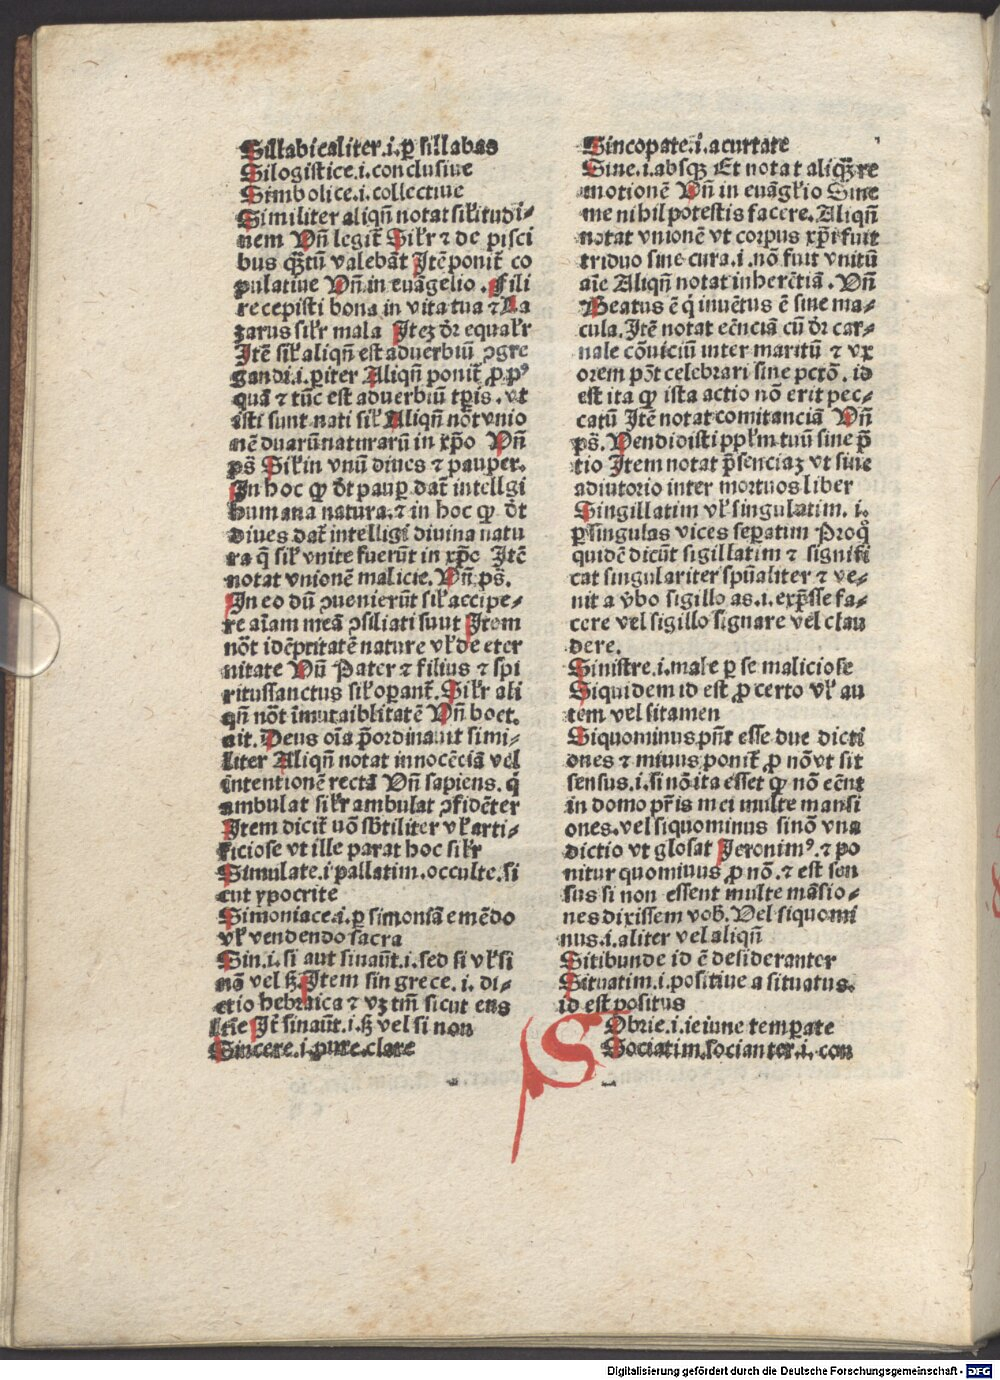 Sillabicaliter.i.ꝑ sillabas
Silogistice.i.conclusiue
Simbolice.i.collectiue
Similiter aliqñ notat sil̃itudi-
nem Vñ legit̃ Sil̃r ⁊ de pisci
bus qꝫtũ valebãt Itẽ ponit̃ co
pulatiue Vñ in euãgelio. Fili
recepisti bona in vita tua ⁊ La
zarus sil̃r mala Iteꝫ dr̃ equal̃r
Itẽ sil̃ aliqñ est aduerbiũ ꝯgre
gandi.i.ꝑiter Aliqñ ponit̃ ꝓ pꝰ
quã ⁊ tũc est aduerbiũ tp̃is. vt
isti sunt nati sil̃ Aliqñ nõt vnio
nẽ duarũ naturarũ in xp̃o Vñ
ps̃ Sil̃ in vnũ diues ⁊ pauper.
In hoc ꝙ dt̃ paup̱ dat̃ intellgi
humana natura.⁊ in hoc ꝙ dt̃
diues dat̃ intelligi diuina natu
ra q̃ sil̃ vnite fuerũt in xp̃o Itẽ
notat vnionẽ malicie. Vñ ps̃.
In eo dũ ꝯuenierũt sil̃ accipe-
re aĩam meã ꝯsiliati sunt Item
nõt idẽptitatẽ nature vl̃ de eter
nitate Vñ Pater ⁊ filius ⁊ spi
ritussanctus sil̃ oꝑant̃. Sil̃r ali
qñ nõt ĩmutaiblitatẽ Vñ boet.
ait. Deus oĩa p̃ordinauit simi-
liter Aliqñ notat innocẽciã vel
ĩntentionẽ rectã Vñ sapiens. q̇
ambulat sil̃r ambulat ꝯfidẽter
Item dicit̃ uõ sb̃tiliter vl̃ arti-
ficiose vt ille parat hoc sil̃r
Simulate.i.pallatim.occulte.si
cut ypocrite
Simoniace.i.ꝑ simoniã emẽdo
vl̃ vendendo sacra
Sin.i.si aut sinaũt.i.sed si vl̃ si
nõ vel sꝫ. Item sin grece.i.di-
ctio hebraica ⁊ vꝫ tm̃ sicut ens
It̃ sinaũt.i.sꝫ vel si non
Sincere.i.pure.clare
Sincopate.i.acurtate
Sine.i.absqꝫ Et notat aliqꝫ re
motionẽ Vñ in euãgl̃io Sine
me nihil potestis facere. Aliqñ
notat vnionẽ vt corpus xp̃i fuit
triduo sine cura.i.nõ fuit vnitũ
aĩe Aliqñ notat inherẽtiã. Vñ
Beatus ẽ q̇ inuẽtus ẽ sine ma-
cula. Itẽ notat eẽnciã cũ dr̃ car-
nale cõuiciũ inter maritũ ⁊ vx
orem põt celebrari sine pctõ. id
est ita ꝙ ista actio nõ erit pec-
catũ Itẽ notat comitanciã Vñ
ps̃. Vendidisti ppl̃m tuũ sine p̃
tio Item notat p̃senciaꝫ vt sine
adiutorio inter mortuos liber
Singillatim vl̃ singulatim.i.
ꝑ singulas vices sepatim Proq̊
quidẽ dicũt sigillatim ⁊ signifi
cat singulariter spũaliter ⁊ ve-
nit a v̾bo sigillo as.i.exp̃sse fa-
cere vel sigillo signare vel clau
dere.
Sinistre.i.male ꝑ se maliciose
Siquidem id est ꝓ certo vl̃ au
tem vel sitamen
Siquominus pñt esse due dicti
ones ⁊ minus ponit̃ ꝓ nõ vt sit
sensus.i.si nõ ita esset ꝙ nõ eẽnt
in domo pr̃is mei multe mansi
ones. vel siquominus sinõ vna
dictio vt glosat Jeronimꝰ.⁊ po
nitur quominus ꝓ nõ.⁊ est sen
sus si non essent multe mãsio-
nes dixissem vob̃. Vel siquomi
nus.i.aliter vel aliqñ
Sitibunde id ẽ desideranter
Situatim.i.positiue a situatus.
id est positus
SObrie.i.ieiune temꝑate
Sociatim.socianter.i.con
Digitalisierung gefördert durch die Deutsche Forschungsgemeinschaft - DFG